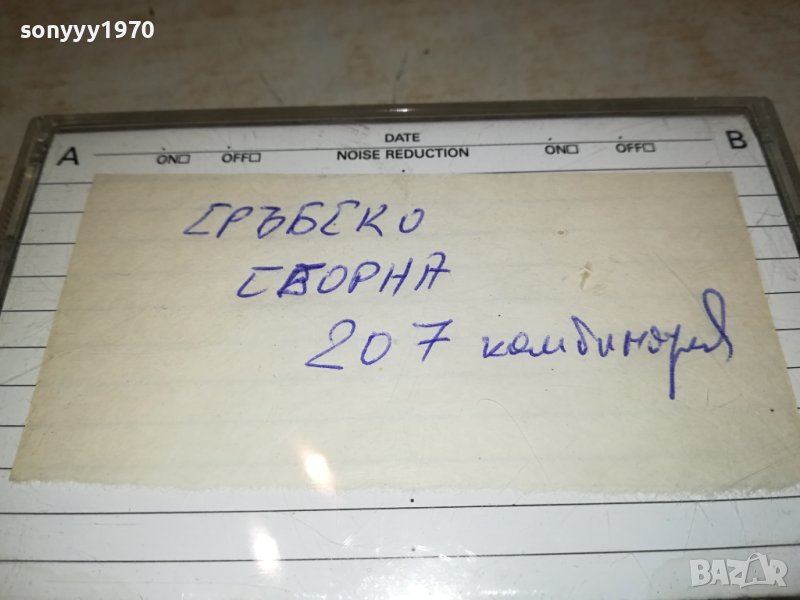 sonyyy1970
A DATE B
ON OFF NOISE REDUCTION ON OFF
СРЪБСКО
СБОРНА
207
BAZAR